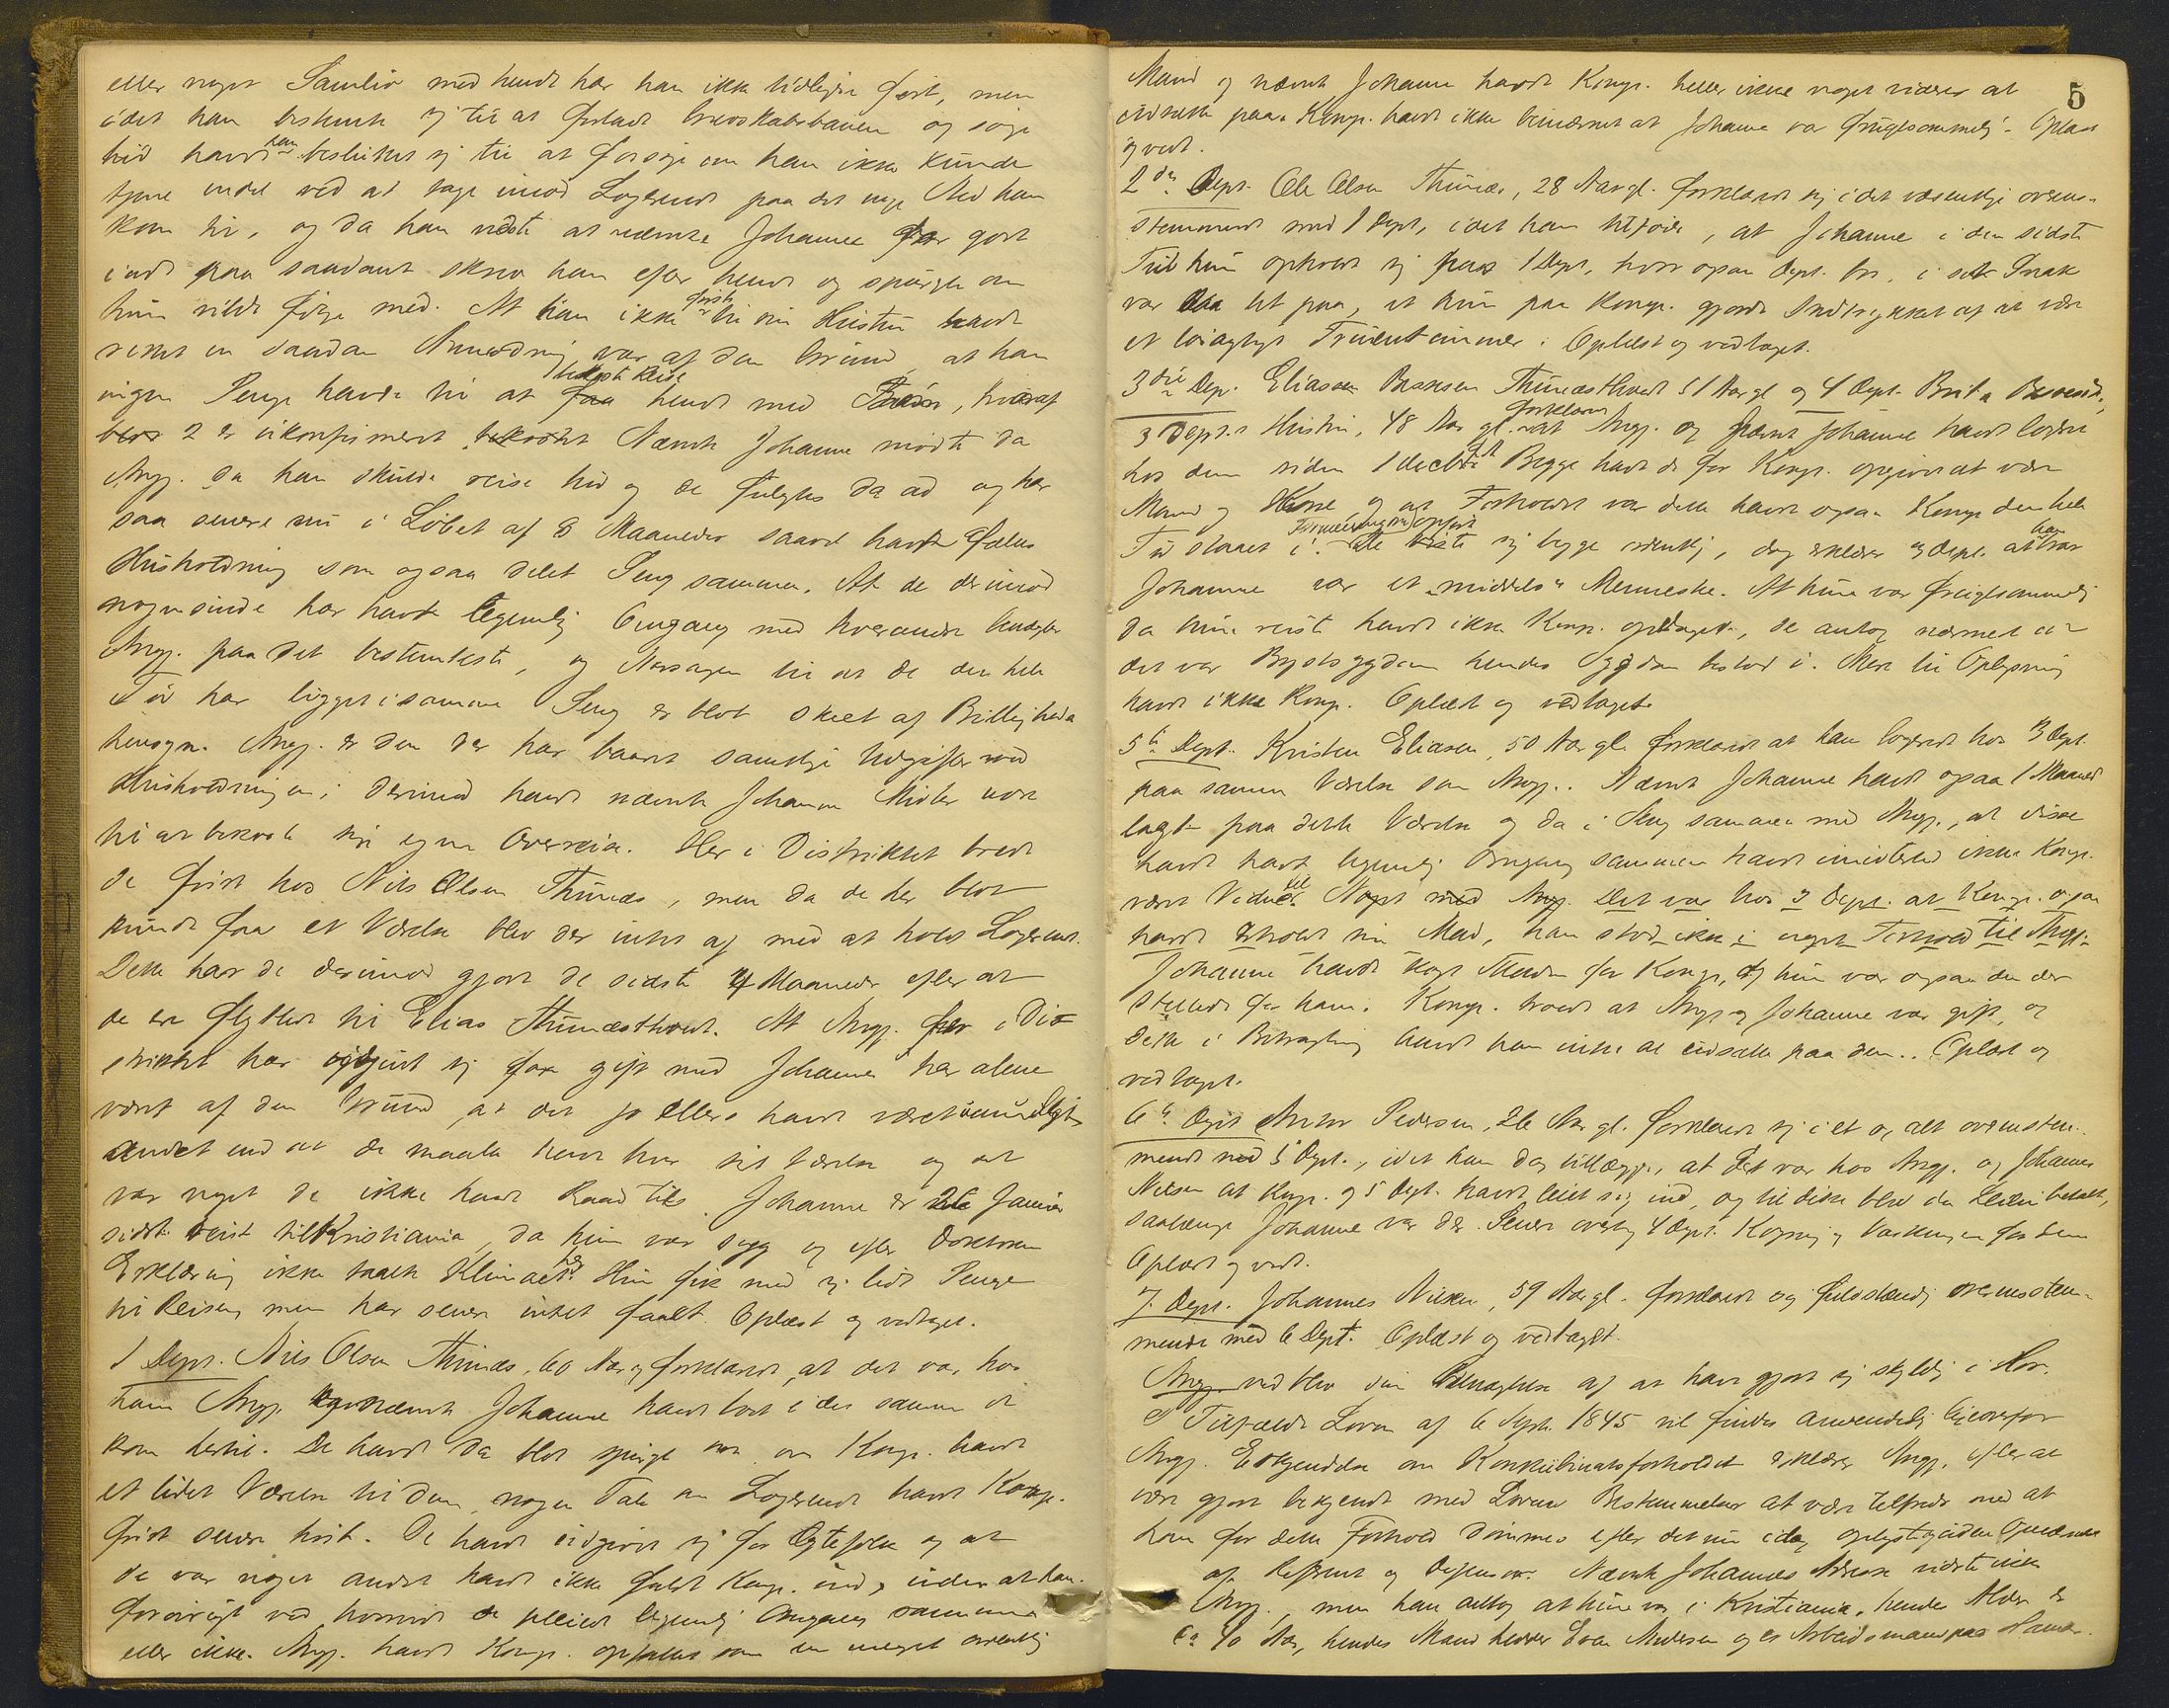 eller noget Samliv med hende har han ikke tidligere ført, men
idet han bestemte sig til at forlade  og søge
hid havde han besluttet sig til at forsøge om han ikke kunde
tjene endel ved at tage imod Logerende paa det nye Sted han
kom til, og da han vidste at nævnte Johanne var godt
inde paa saadant skrev han efter hende og spurgte om
hun vilde følge med. At han ikke først til sin Hustru havde
rettet en saadan Anmodning var af den Grund, at han
ingen Penge havde til at faa hende med Børn, hvoraf
2 er ukonfirmeret. Nævnte Johanne mødte da
Angj. da han skulde reise hid og de fulgtes da ad og har
saa senere nu i Løbet af 8 Maaneder saavel havt fælles
Husholdning som ogsaa delet Seng sammen. At de derimod
nogensinde har havt legemlig Omgang med hverandre benægter
Angj. paa det bestemteste, og Aarsagen til at de den hele
Tid har ligget i samme Seng er blot skeet af Billigheds
hensyn. Angj. er den der har baaret samtlige Udgifter ved
Husholdningen; derimod havde nævnte Johanne Midler nok
til at bekoste sin egen Overreise. Her i Distriktet boede
de først hos Nils Olsen Thunæs, men da de der blot
kunde faa et Værelse blev der intet af med at holde Logerende.
Dette har de derimod gjort de sidste 4 Maaneder efter at
de er flyttet til Elias Thunæsthvedt. At Angj. her i Di-
striktet har udgivet sig for gift med Johanne har alene
været af den Grund, at det jo ellers havde været umuligt
andet end at de maatte have hver sit Værelse og det
var noget de ikke havde Raad til. Johanne er Januar
sidst reist til Kristiania, da hun var syg og efter Doktorens
Erklæring ikke taalte Klimaet her. Hun fik med sig lidt Penge
til Reisen, men har senere intet faaet. Oplæst og vedtaget.
1 Dept. Nils Olsen Thunæs, 60 Aar gl. forklarede, at det var hos
ham Angj. og nævnte Johanne havde boet i da samme de
kom hertil. De havde da blot spurgt om Komp. havde
et lidet Værelse til dem, nogen Tale om Logerende havde Komp.
først senere hørt. De havde udgivet sig for Ægtefolk og at
de var noget andet havde ikke faldt Komp. ind, uden at han
forøvrigt ved hvorvidt de pleiede legemlig Omgang sammen
eller ikke. Angj. havde Komp. opfattet som en meget ordentlig
5
Mand og nævnte Johanne havde Komp. heller ikke noget videre at
udsætte paa. Komp. havde ikke bemærket at Johanne var frugtsommelig. Oplæst
og vedt.
2den Dept. Ole Olsen Thunæs, 28 Aar gl. forklarede sig i det væsentlige overens-
stemmende med 1 Dept, idet han tilføier, at Johanne i den sidste
Tid hun opholdt sig paa 1 Dept, hvor ogsaa Dept. bor, i sit Snak
var saa let paa, at hun paa Komp. gjorde Indtrykket af at være
et løsagtigt Fruentimmer. Oplæst og vedtaget.
3die Dep. Eliassen Thunæsthvedt 51 Aar gl og 4 Dept. Brita
3 Dept.s Hustru, 48 Aar gl. forklarer at Angj. og nævnte Johanne havde logeret
hos dem siden 1 Decbr. Begge havde de for Komp. opgivet at være
Mand og Kone og at Forholdet var dette havde ogsaa Komp den hele
Tid staaet i Formening om. De opførte sig begge ordentlig, dog erklærer 3 Dept. at han
Johanne var et "middels" Menneske. At hun var frugtsommelig
da hun reiste havde ikke Komp. opdaget, de antog nærmest at
det var Brystsygdom hendes Sygdom bestod i. Mere til Oplysning
havde ikke Komp. Oplæst og vedtaget.
5te Dept. Kristen Eliasen, 50 Aar gl. forklarede at han logerede hos 3 Dept.
paa samme Værelse som Angj.. Nævnte Johanne havde ogsaa 1 Maaned
lagt paa dette Værelse og da i Seng sammen med Angj., at disse
havde havt legemlig Omgang sammen havde imidlertid ikke Komp.
været Vidne til. Det var hos 3 Dept. at Komp. ogsaa
havde erholdt sin Mad, han stod ikke i noget Forhold til Angj.
Johanne havde kogt Maden for Komp, og hun var ogsaa den der
stellede for ham. Komp. troede at Angj. og Johanne var gift, og
dette i Betragtning havde han intet at udsætte paa dem. Oplæst og
vedtaget.
6te Dept Anton Pedersen, 26 Aar gl. forklarede sig i et og alt overensstem-
mende med 5 Dept., idet han dog tillægger, at det var hos Angj. og Johanne
Nielsen at Komp. og 5 Dept. havde leiet sig ind, og til disse blev da Leien betalt,
saalænge Johanne var der. Senere overtog 4 Dept. Kogning og Vaskningen for dem
Oplæst og vedt.
7. Dept. Johannes Nilsen, 59 Aar gl. forklarede sig fuldstændig overensstem-
mende med 6 Dept. Oplæst og vedtaget.
Angj. vedblev sin Benægtelse af at have gjort sig skyldig i Hor.
I Tilfælde Loven af 6 Sept. 1845 vil findes anvendelig ligeoverfor
Angj. Erkjendelse om Konkubinatsforholdet erklærer Angj. efter at
være gjort bekjendt med Lovens Bestemmelser at være tilfreds med at
han for dette Forhold dømmes efter det nu idag oplyste uden Opnævnelse
af Aktor og Defensor. Nævnte Johannes Adresse vidste ikke
Angj., men han antog at hun var i Kristiania, hendes Alder er
ca. 40 Aar, hendes Mand hedder Andersen og er Arbeidsmand paa Hamar.